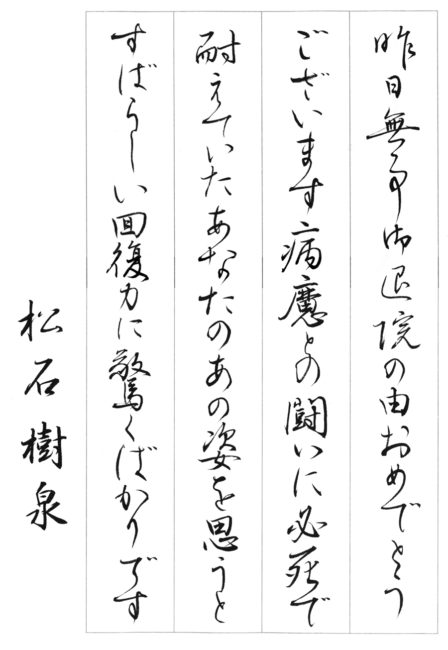 昨日無事御退院の由おめでとう
ございます病魔との闘いに必死で
耐えていたあなたのあの姿を思うと
すばらしい回復力に驚くばかりです
松石樹泉